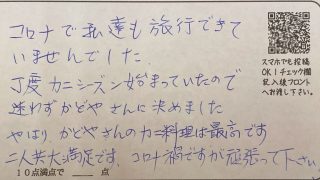 コロナで私達も旅行できて
いませんでした。
丁度カニシーズン始まっていたので
迷わずかどやさんに決めました
やはりかどやさんのカニ料理は最高です
二人共大満足です、コロナ禍ですが頑張って下さい
10点満点で 点
スマホでも投稿
OK!チェック欄
記入後フロント
へお渡し下さい。